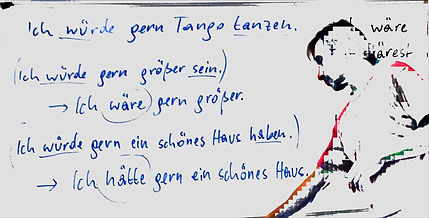 Ich würde gern Tango tanzen.
(Ich würde gern größer sein.)
→ Ich wäre gern größer.
(Ich würde gern ein schönes Haus haben.)
→ Ich hätte gern ein schönes Haus.
wäre
wärest